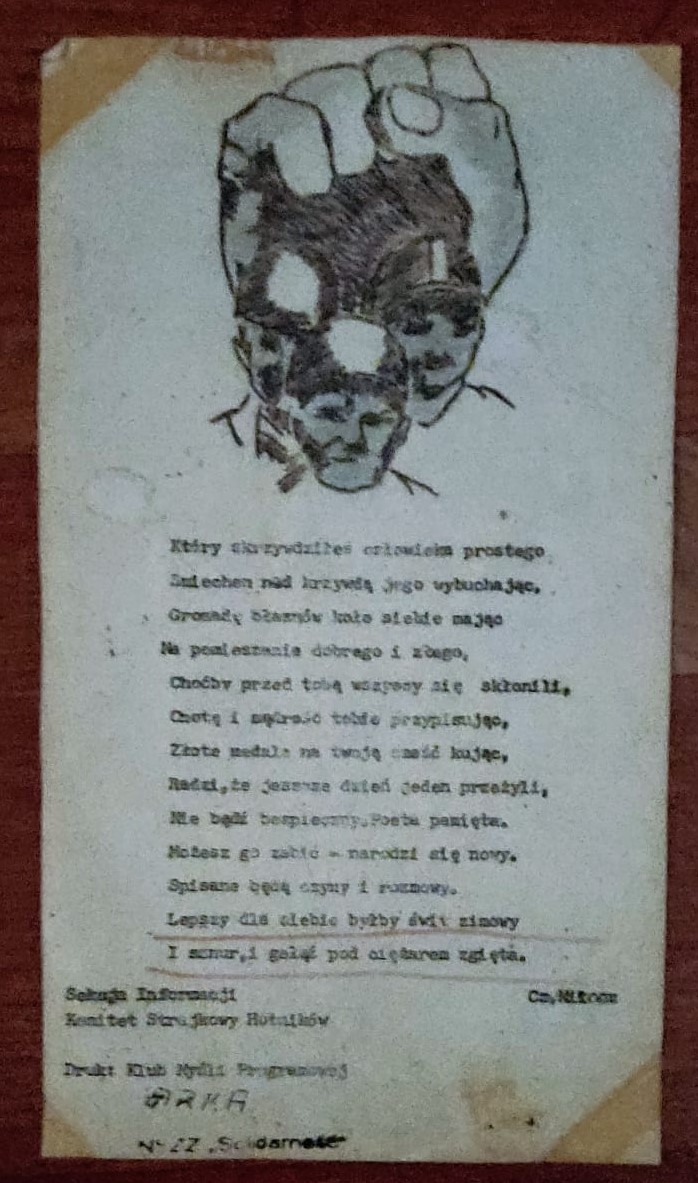 Który skrzywdziłeś człowieka prostego
Śmiechem nad krzywdą jego wybuchając,
Gromadę błaznów koło siebie mając
Na pomieszanie dobrego i złego,
Choćby przed tobą wszyscy się skłonili,
Cnotę i mądrość tobie przypisując,
Złote medale na twoją cześć kując,
Radzi,że jeszcze dzień jeden przeżyli,
Nie bądź bezpieczny.Poeta pamięta.
Możesz go zabić - narodzi się nowy.
Spisane będą czyny i rozmowy.
Lepszy dla ciebie byłby świt zimowy
I sznur,i gałąź pod ciężarem zgięta.
Sekcja Informacji Cz.Miłosz
Komitet Strajkowy Hutników
Druk: Klub Myśli Programowej
ARKA
"Solidarność"